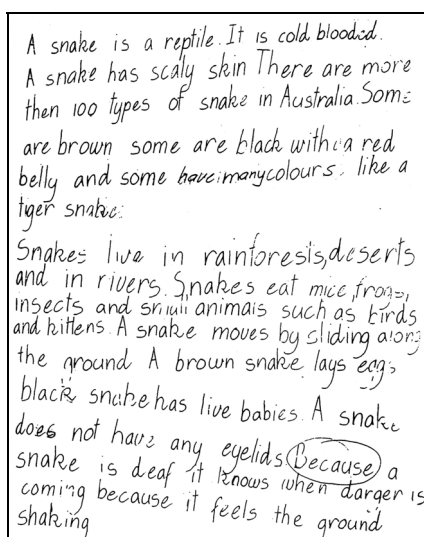 A snake is a reptile. It is cold blooded.
A snake has scaly skin There are more
then 100 types of snake in Australia. Some
are brown some are black with a red
belly and some have many colours. like a
tiger snake.
Snakes live in rainforests, deserts
and in rivers. Snakes eat mice, frogs,
insects and small animals such as birds
and kittens. A snake moves by sliding along
the ground A brown snake lays eggs
black snake has live babies. A snake
does not have any eyelids. Because a
snake is deaf it knows when danger is
coming because it feels the ground
shaking